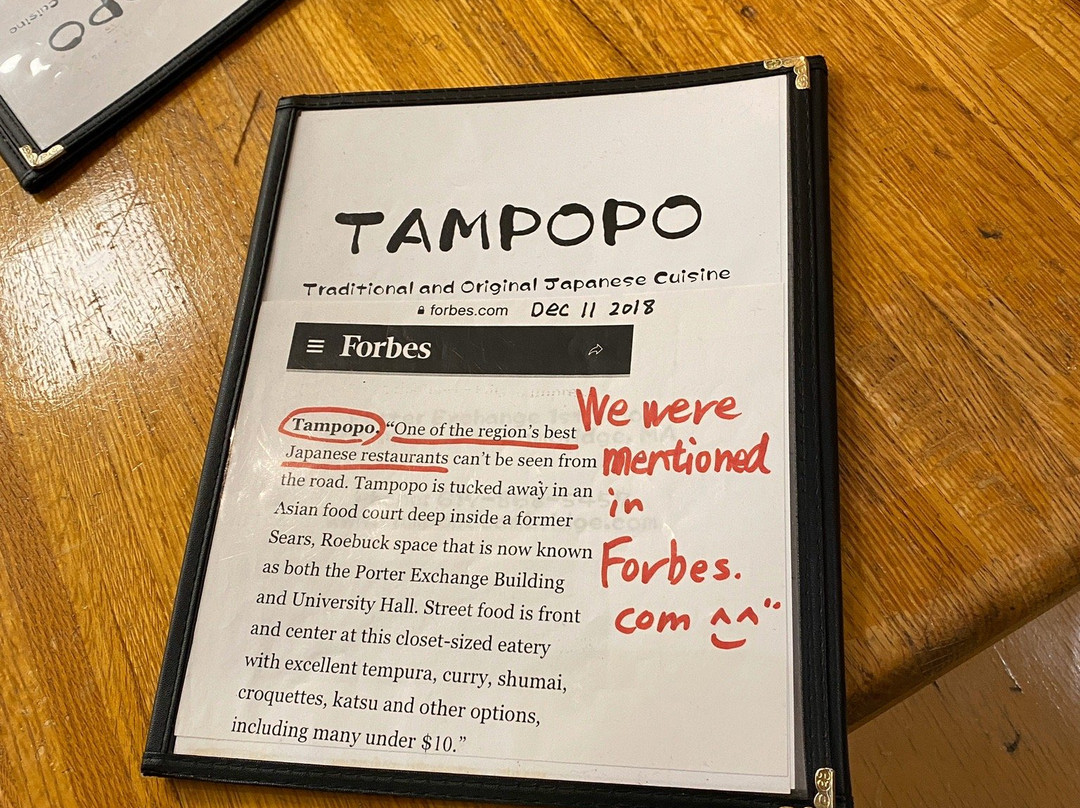 TAMPOPO
Traditional and Original Japanese Cuisine
forbes.com Dec 11 2018
Forbes
Tampopo. "One of the region's best
Japanese restaurants can't be seen from
the road. Tampopo is tucked away in an
Asian food court deep inside a former
Sears, Roebuck space that is now known
as both the Porter Exchange Building
and University Hall. Street food is front
and center at this closet-sized eatery
with excellent tempura, curry, shumai,
croquettes, katsu and other options,
including many under $10."
We were
mentioned
in
Forbes.
com ^^"
PO
Cuisine